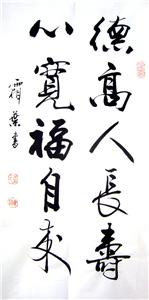 德高人長壽
心寬福自來
霜葉書